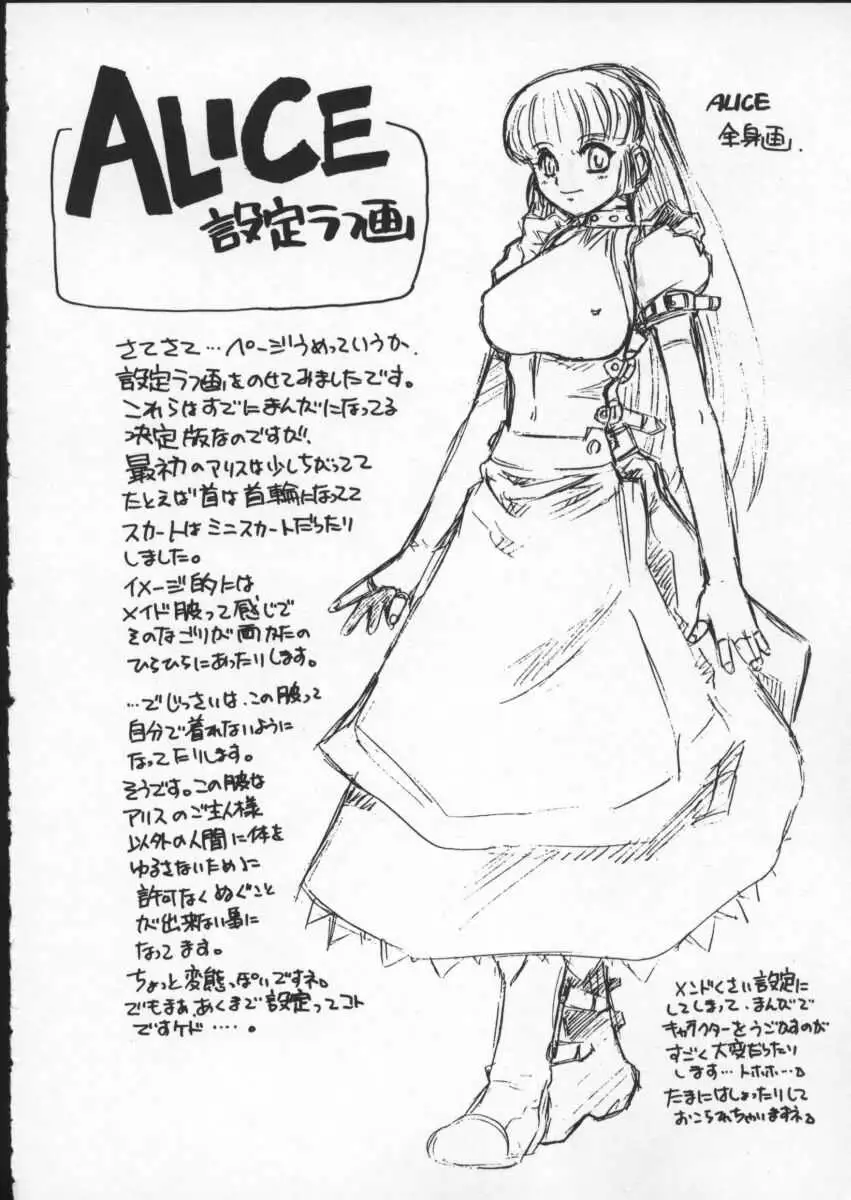 ALICE
設定ラフ画
ALICE
全身画.
さてさて…ページうめっていうか、
設定ラフ画をのせてみましたです。
これらはすでにまんがになってる
決定版なのですが、
最初のアリスは少しちがってて
たとえば首は首輪になってて
スカートはミニスカートだったり
しました。
イメージ的には
メイド服って感じで
そのなごりが両かたの
ひらひらにあったりします。
…でじっさいは、この服って
自分で着れないように
なってたりします。
そうです。この服は
アリスのご主人様
以外の人間に体を
ゆるさないために
許可なくぬぐこと
が出来ない様に
なってます。
ちょっと変態っぽいですネ。
でもまぁ、あくまで設定ってコト
ですケド……。
メンドくさい設定に
してしまって、まんがで
キャラクターをうごかすのが
すごく大変だったり
します…トホホ…。
たまにはしょったりして
おこられちゃいますネ。